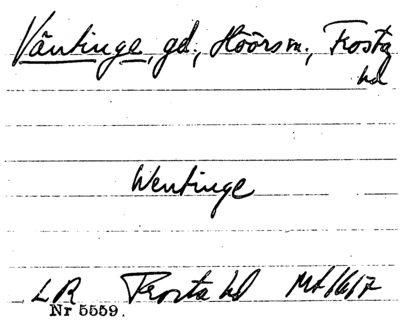 Väntinge, gd., Höörs sn., Frosta
hd
Wentinge
LR Frosta hd Mt 1617
Nr 5559.